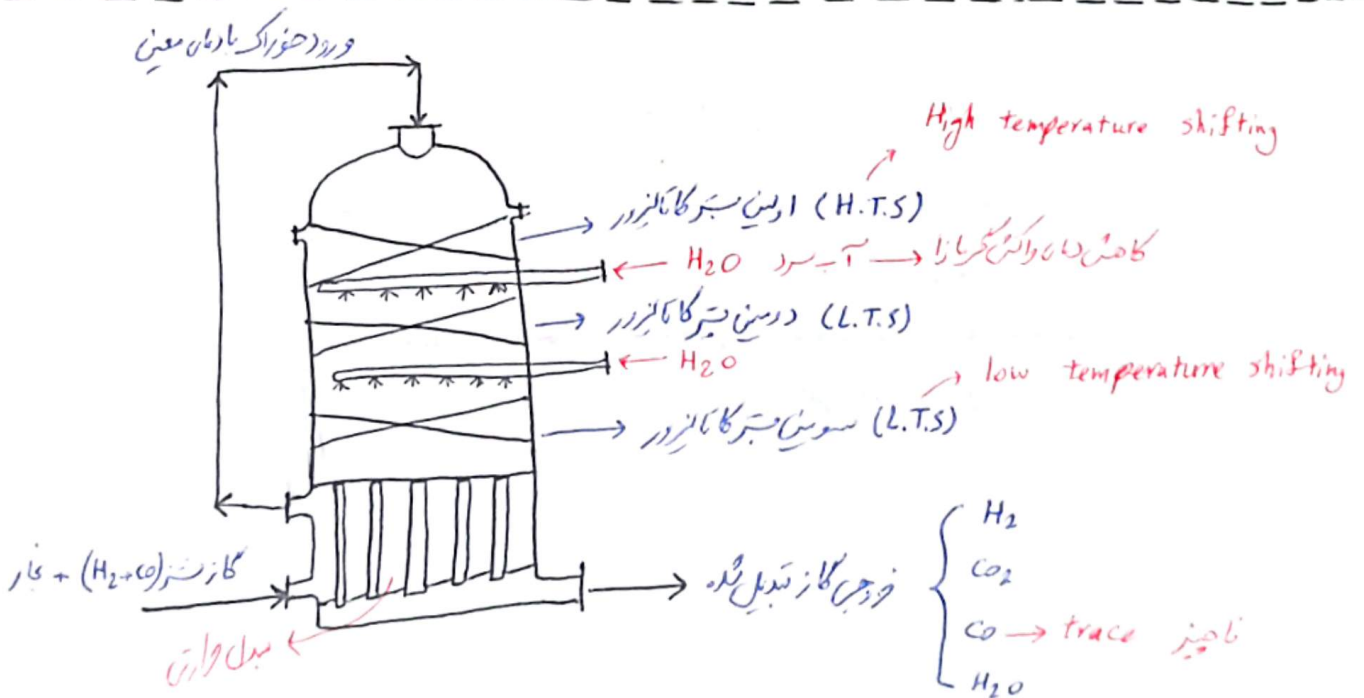 ورود خوراک با دمای معین
High temperature shifting
اولین بستر کاتالیزور (H.T.S)
H2O آب سرد → کاهش دمای واکنش گرمازا
دومین بستر کاتالیزور (L.T.S)
H2O
low temperature shifting
سومین بستر کاتالیزور (L.T.S)
گاز سنتز (H2+CO) + بخار
مبدل حرارتی
خروجی گاز تبدیل شده
H2
CO2
CO → trace ناچیز
H2O